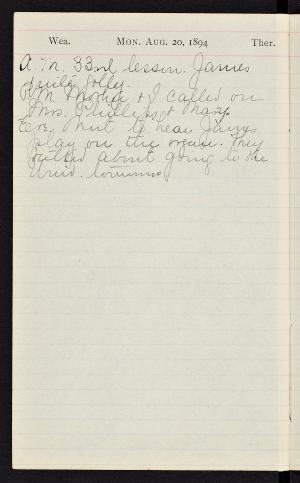 Wea. MON. AUG. 20, 1894 Ther.
A.M. 33rd lesson. James
quite jolly.
P.M. Mother & I called on
Mrs. Phillips & Mary.
Eve. Went to hear James
play on the organ. They
talked about going to the
Univ.